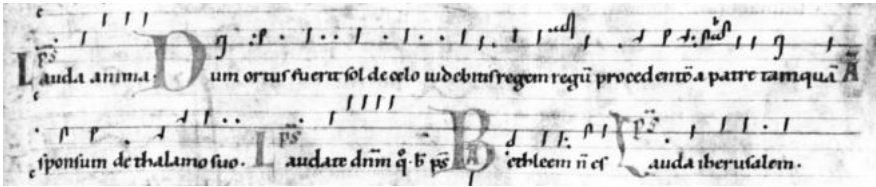 p̄s Lauda anima· Dum ortus fuerit sol de celo uidebitis regem regū procedentē a patre tamquā Ā
sponsum de thalamo suo. p̄s Laudate dn̄m q̄· b̄ p̄s BA ethleem n̄ es p̄s. Lauda iherusalem.